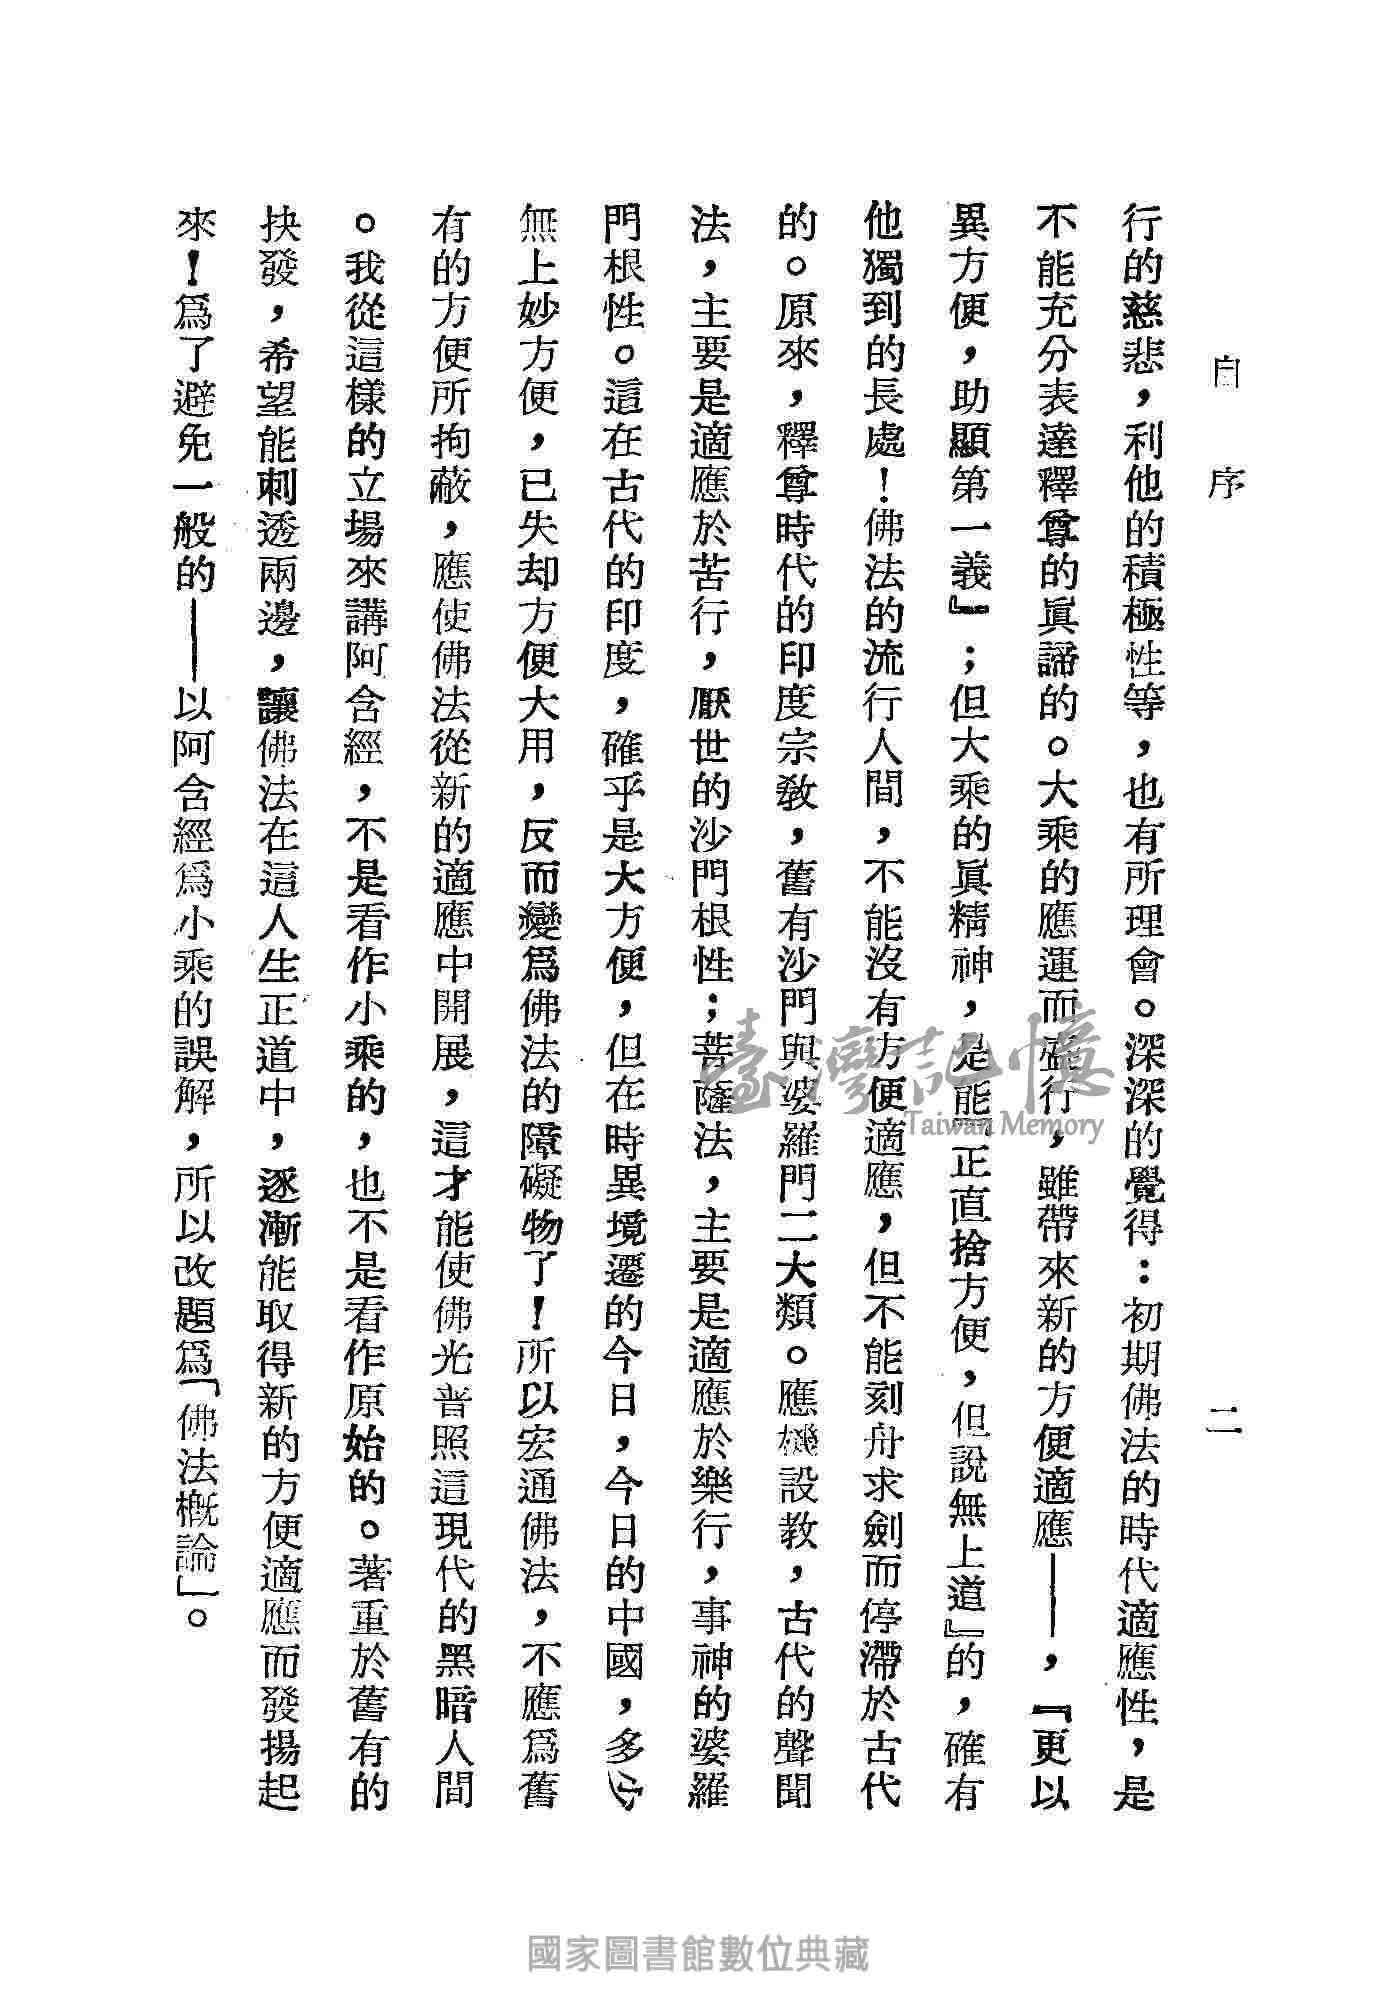 自序
二
行的慈悲，利他的積極性等，也有所理會。深深的覺得：初期佛法的時代適應性，是
不能充分表達釋尊的眞諦的。大乘的應運而盛行，雖帶來新的方便適應——，『更以
異方便，助顯第一義』；但大乘的眞精神，是能『正直捨方便，但說無上道』的，確有
他獨到的長處！佛法的流行人間，不能沒有方便適應，但不能刻舟求劍而停滯於古代
的。原來，釋尊時代的印度宗敎，舊有沙門與婆羅門二大類。應機設教，古代的聲聞
法，主要是適應於苦行，厭世的沙門根性；菩薩法，主要是適應於樂行，事神的婆羅
門根性。這在古代的印度，確乎是大方便，但在時異境遷的今日，今日的中國，多少
無上妙方便，已失却方便大用，反而變爲佛法的障礙物了！所以宏通佛法，不應爲舊
有的方便所拘蔽，應使佛法從新的適應中開展，這才能使佛光普照這現代的黑暗人間
。我從這樣的立場來講阿含經，不是看作小乘的，也不是看作原始的。著重於舊有的
抉發，希望能刺透兩邊，讓佛法在這人生正道中，逐漸能取得新的方便適應而發揚起
來！爲了避免一般的——以阿含經爲小乘的誤解，所以改題爲「佛法概論」。
臺灣記憶
Taiwan Memory
國家圖書館數位典藏